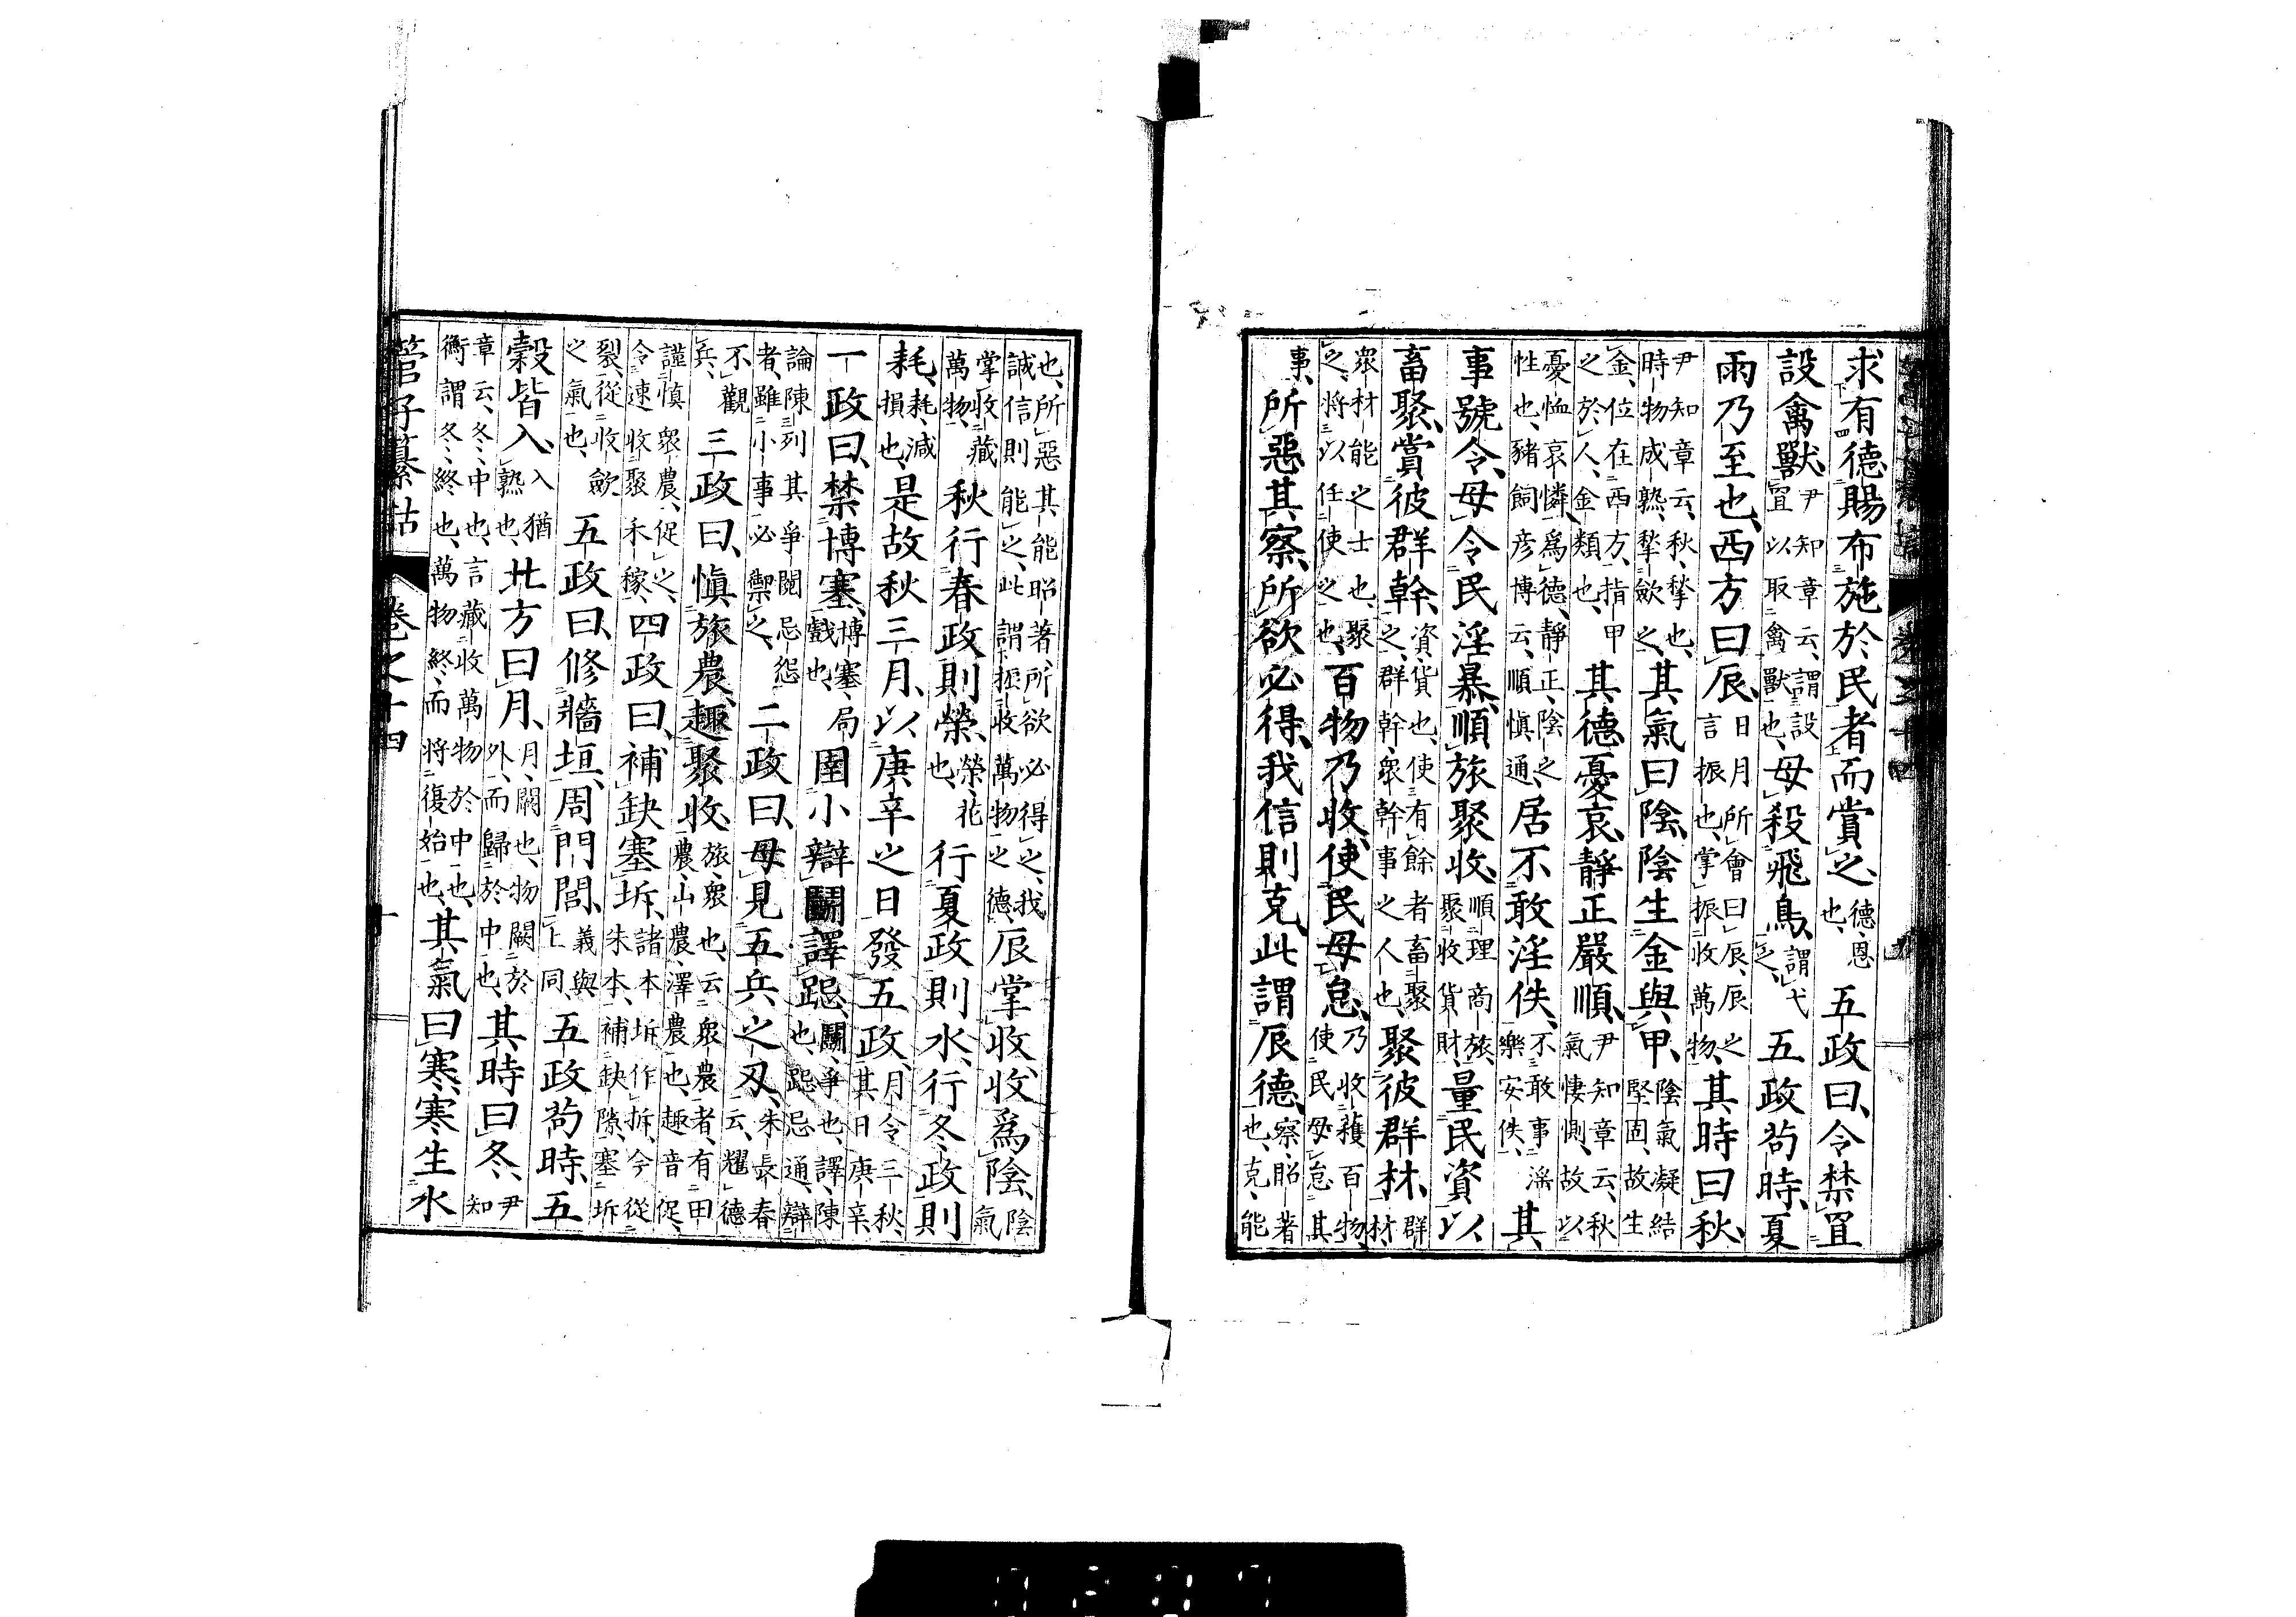 求有德賜布施於民者而賞之、德、恩也、五政曰、令禁罝
設禽獸、尹知章云、謂設罝以取禽獸也、毋殺飛鳥、謂弋之、五政茍時、夏
雨乃至也、西方曰辰、日月所會曰辰、辰之言振也、掌振收萬物、其時曰秋、
尹知章云、秋、揫也、時物成熟、揫斂之、其氣曰陰、陰生金與甲、陰氣凝結堅固、故生
金、位在西方、指甲之於人、金類也、其德憂哀、靜正嚴順、尹知章云、秋氣悽惻、故以
憂恤哀憐爲德、靜正、陰之性也、豬飼彥博云、順愼通、居不敢淫佚、不敢事淫樂安佚、其
事號令、毋令民淫暴、順旅聚收、順理商旅、聚收貨財、量民資以
畜聚、賞彼群幹、資、貨也、使有餘者畜聚之、群幹、衆幹事之人也、聚彼群材、群材、
衆材能之士也、聚之、將以任使之也、百物乃收、使民毋怠、乃收穫百物、使民毋怠其
事、所惡其察、所欲必得、我信則克、此謂辰德、察、昭著也、克、能
也、所惡其能昭著、所欲必得之、我誠信則能之、此謂振收萬物之德、辰掌收、收爲陰、陰氣
掌收藏萬物、秋行春政則榮、榮、花也、行夏政則水、行冬政則
耗、耗、減損也、是故秋三月、以庚辛之日發五政、月令三秋、其日庚辛
一政曰、禁博塞、博塞、局戲也、圉小辯、鬭譯跽、鬭、爭也、譯、陳也、跽忌通、辯
論陳列其爭鬩忌怨者、雖小事必禦之、二政曰、毋見五兵之刃、朱長春云、耀德
不觀兵、三政曰、愼旅農、趣聚收、旅、衆也、云衆農者、有田農、山農、澤農也、趣音促、
謹愼衆農、促之、令速收聚禾稼、四政曰、補缺塞坼、諸本坼作拆、今從朱本、補缺隙、塞坼
裂、從收斂之氣也、五政曰、修牆垣、周門閭、義與上同、五政茍時、五
穀皆入、入猶熟也、北方曰月、月、闕也、物闕於外、而歸於中也、其時曰冬、尹知
章云、冬、中也、言藏收萬物於中也、衞謂冬、終也、萬物終、而將復始也、其氣曰寒、寒生水
管子纂詁 卷之十四 十